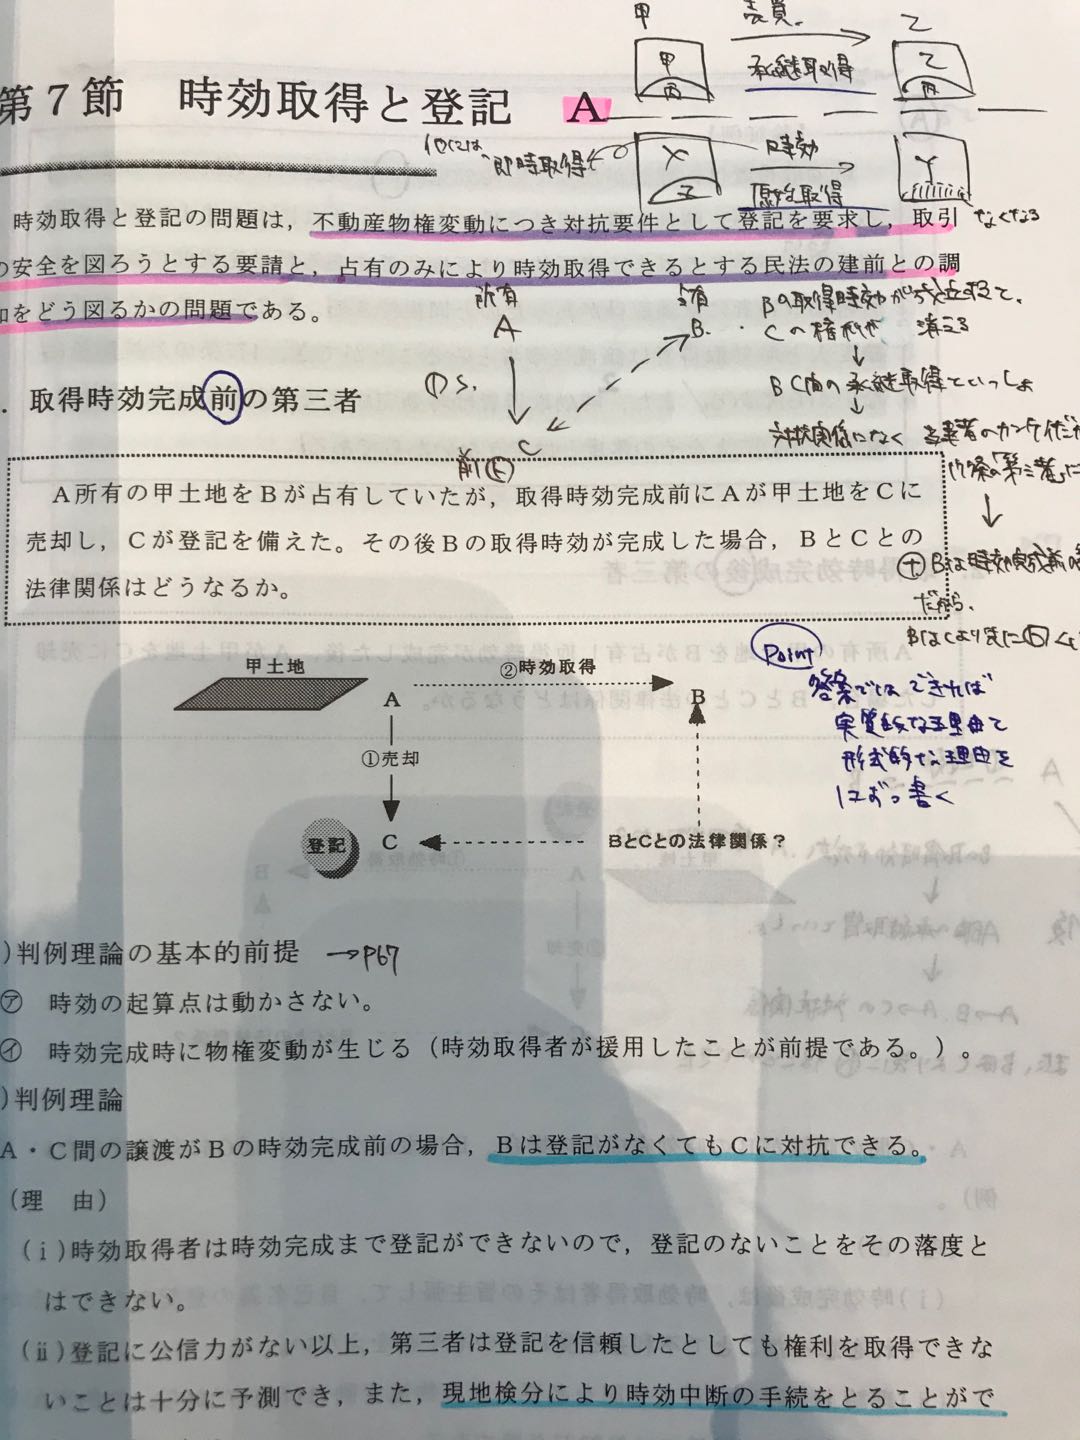 甲 売買 乙
甲 丙
承継取得
乙 丙
第7節 時効取得と登記 A
他には 即時取得も
時効
原始取得
Y
時効取得と登記の問題は，不動産物権変動につき対抗要件として登記を要求し，取引
の安全を図ろうとする要請と，占有のみにより時効取得できるとする民法の建前との調
和をどう図るかの問題である。
なくなる
所有 占有
A B
① S.
C
前(E)
Bの取得時効が
Cの権利が 消える
↓
BC間の承継取得といっしょ
↓
対抗関係になく 当事者の
↓
だから、
．取得時効完成前の第三者
A所有の甲土地をBが占有していたが，取得時効完成前にAが甲土地をCに
売却し，Cが登記を備えた。その後Bの取得時効が完成した場合，BとCとの
法律関係はどうなるか。
Point
答案ではできれば
実質的な理由と
形式的な理由を
1こずつ書く
甲土地
A ②時効取得 B
①売却
登記 C BとCとの法律関係？
)判例理論の基本的前提 →P67
㋐ 時効の起算点は動かさない。
㋑ 時効完成時に物権変動が生じる（時効取得者が援用したことが前提である。）。
)判例理論
A・C間の譲渡がBの時効完成前の場合，Bは登記がなくてもCに対抗できる。
（理 由）
(ⅰ)時効取得者は時効完成まで登記ができないので，登記のないことをその落度と
はできない。
(ⅱ)登記に公信力がない以上，第三者は登記を信頼したとしても権利を取得できな
いことは十分に予測でき，また，現地検分により時効中断の手続をとることがで